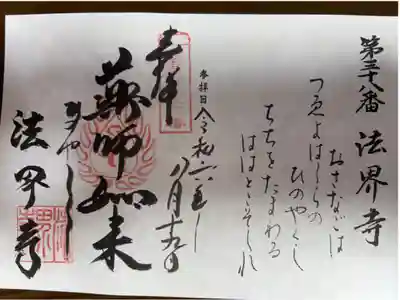 第三十八番 法界寺
おさなごは
つゑよはしらの
ひのやくし
ちちをたまわる
ははとこそしれ
参拝日 令和六年
八月
奉拝
薬師如来
法界寺